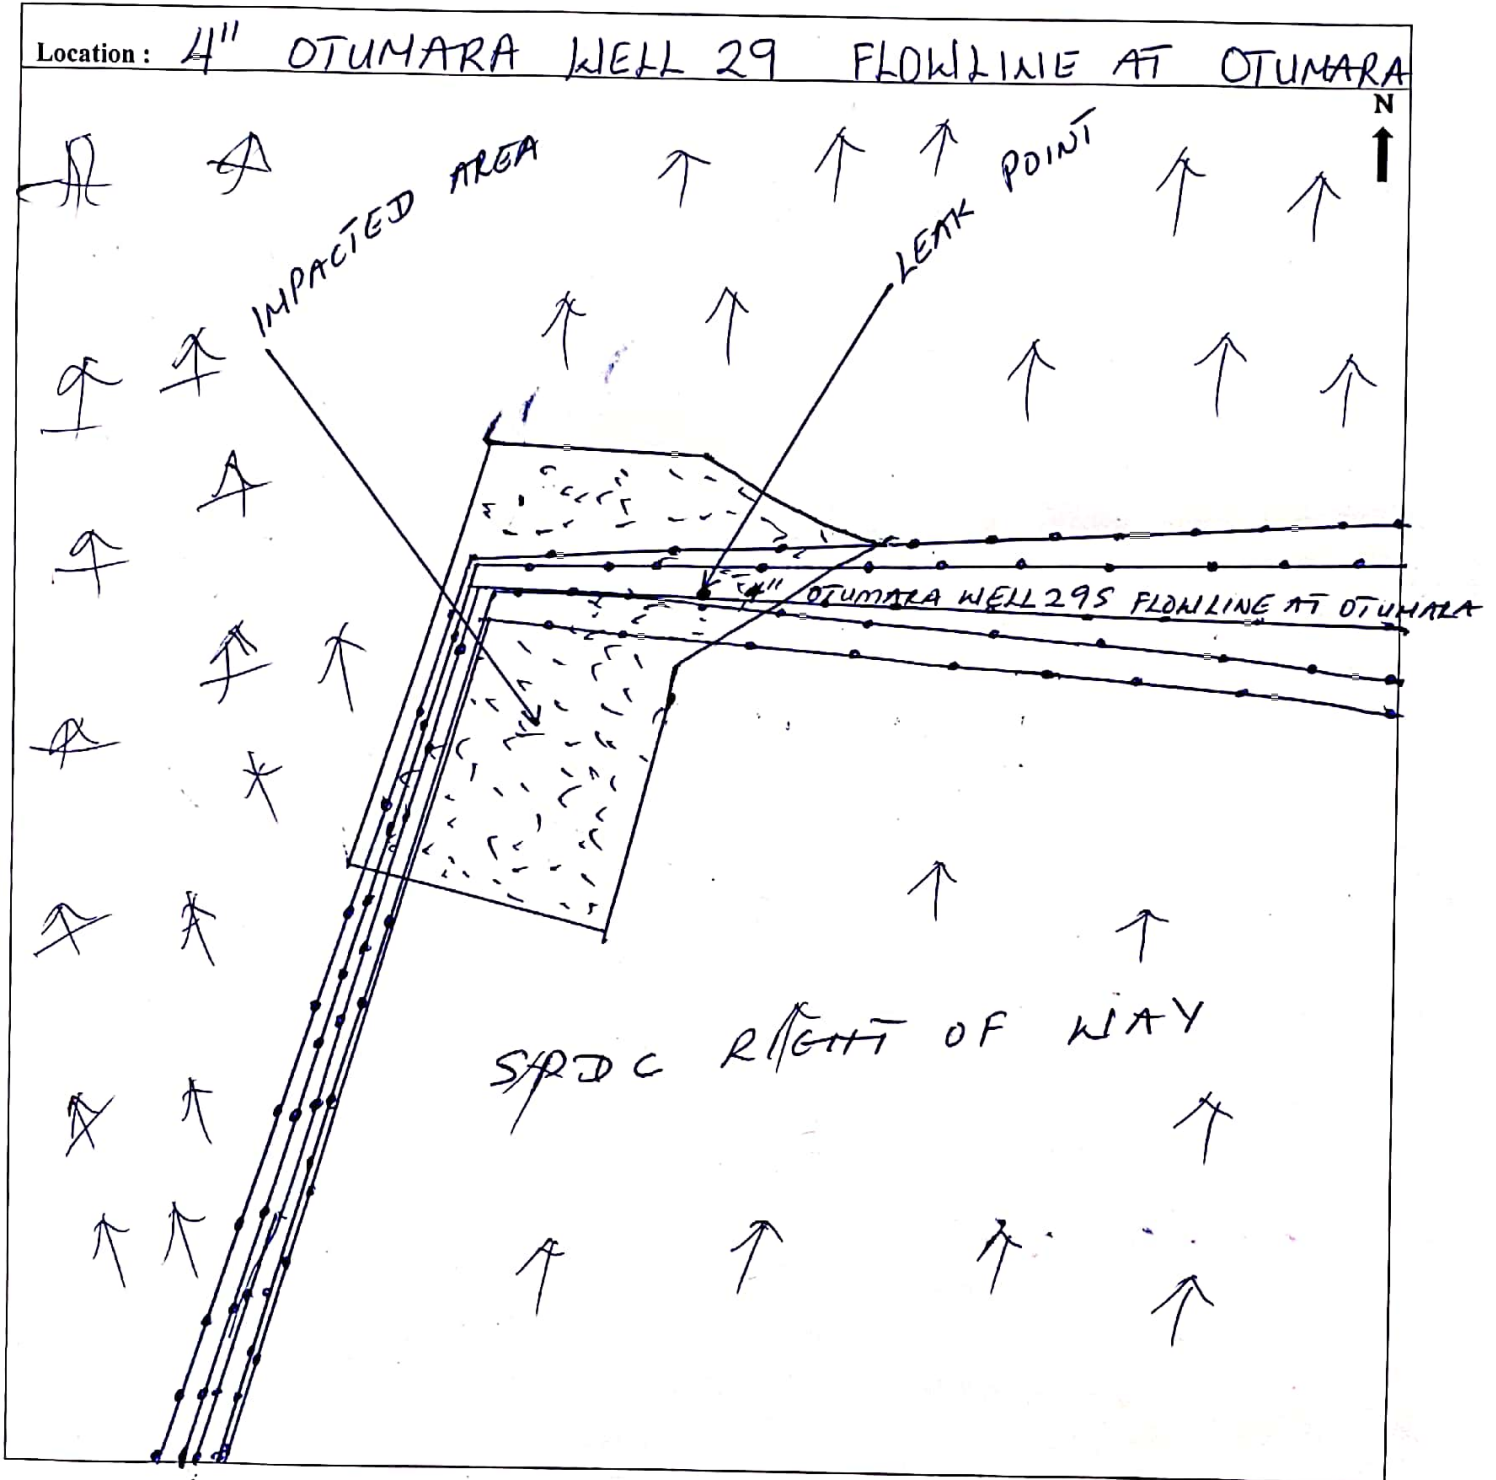 Location : 4" OTUMARA WELL 29 FLOWLINE AT OTUMARA
N
IMPACTED AREA
LEAK POINT
4" OTUMARA WELL 29S FLOWLINE AT OTUMARA
SPDC RIGHT OF WAY